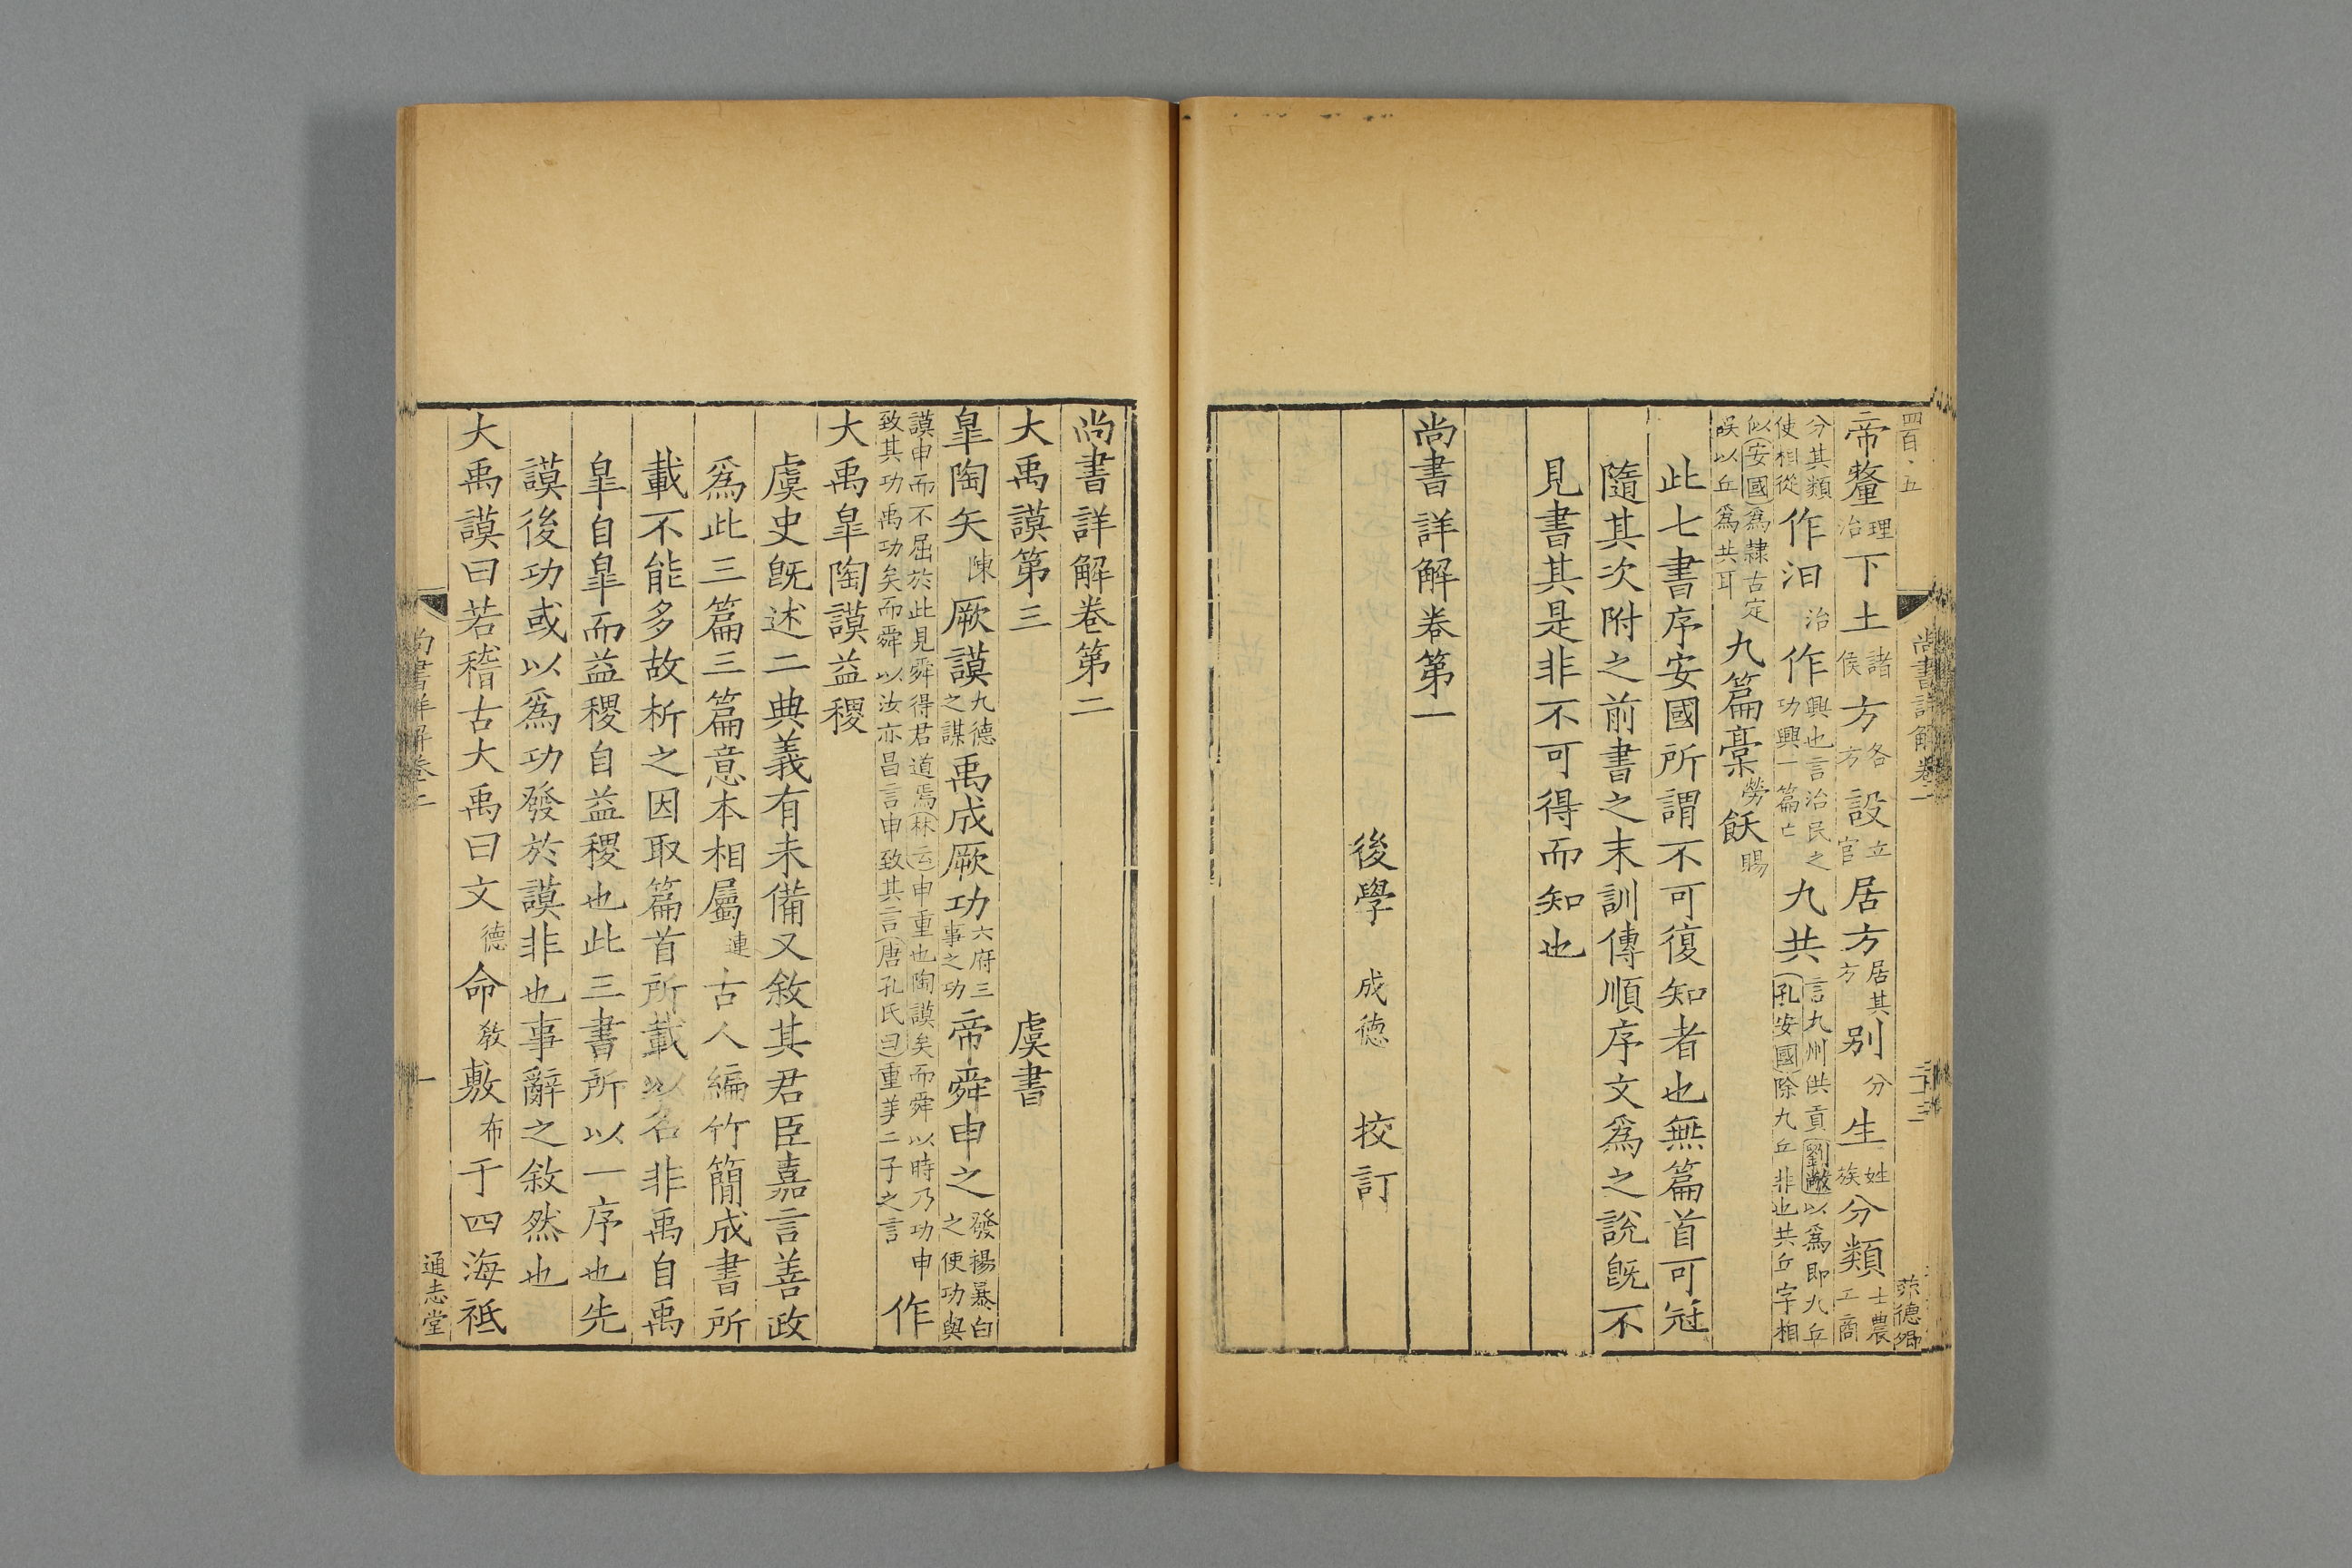 四百五
尚書詳解卷一
二十三
帝釐理治下土諸侯方各方設立官居方居其方别分生姓族分類士農工商
分其類使相從作汩治作興也言治民之功興一篇亡九共言九州供貢劉敞以爲即九丘孔安國除九丘非也共丘字相
似安國爲隷古定誤以丘爲共耳九篇槀勞飫賜
此七書序安國所謂不可復知者也無篇首可冠
隨其次附之前書之末訓傳順序文爲之說旣不
見書其是非不可得而知也
尚書詳解卷第一
後學 成德 挍訂
尚書詳解卷第二
大禹謨第三 虞書
皐陶矢陳厥謨九德之謀禹成厥功六府三事之功帝舜申之發揚暴白之使功與
謨申而不屈於此見舜得君道焉林云申重也陶謨矣而舜以時乃功申致其功禹功矣而舜以汝亦昌言申致其言唐孔氏曰重美二子之言作
大禹皐陶謨益稷
虞史旣述二典義有未備又敘其君臣嘉言善政
爲此三篇三篇意本相屬連古人編竹簡成書所
載不能多故析之因取篇首所載以名非禹自禹
皐自皐而益稷自益稷也此三書所以一序也先
謨後功或以爲功發於謨非也事辭之敘然也
大禹謨曰若稽古大禹曰文德命敎敷布于四海祗
尚書詳解卷二
一
通志堂